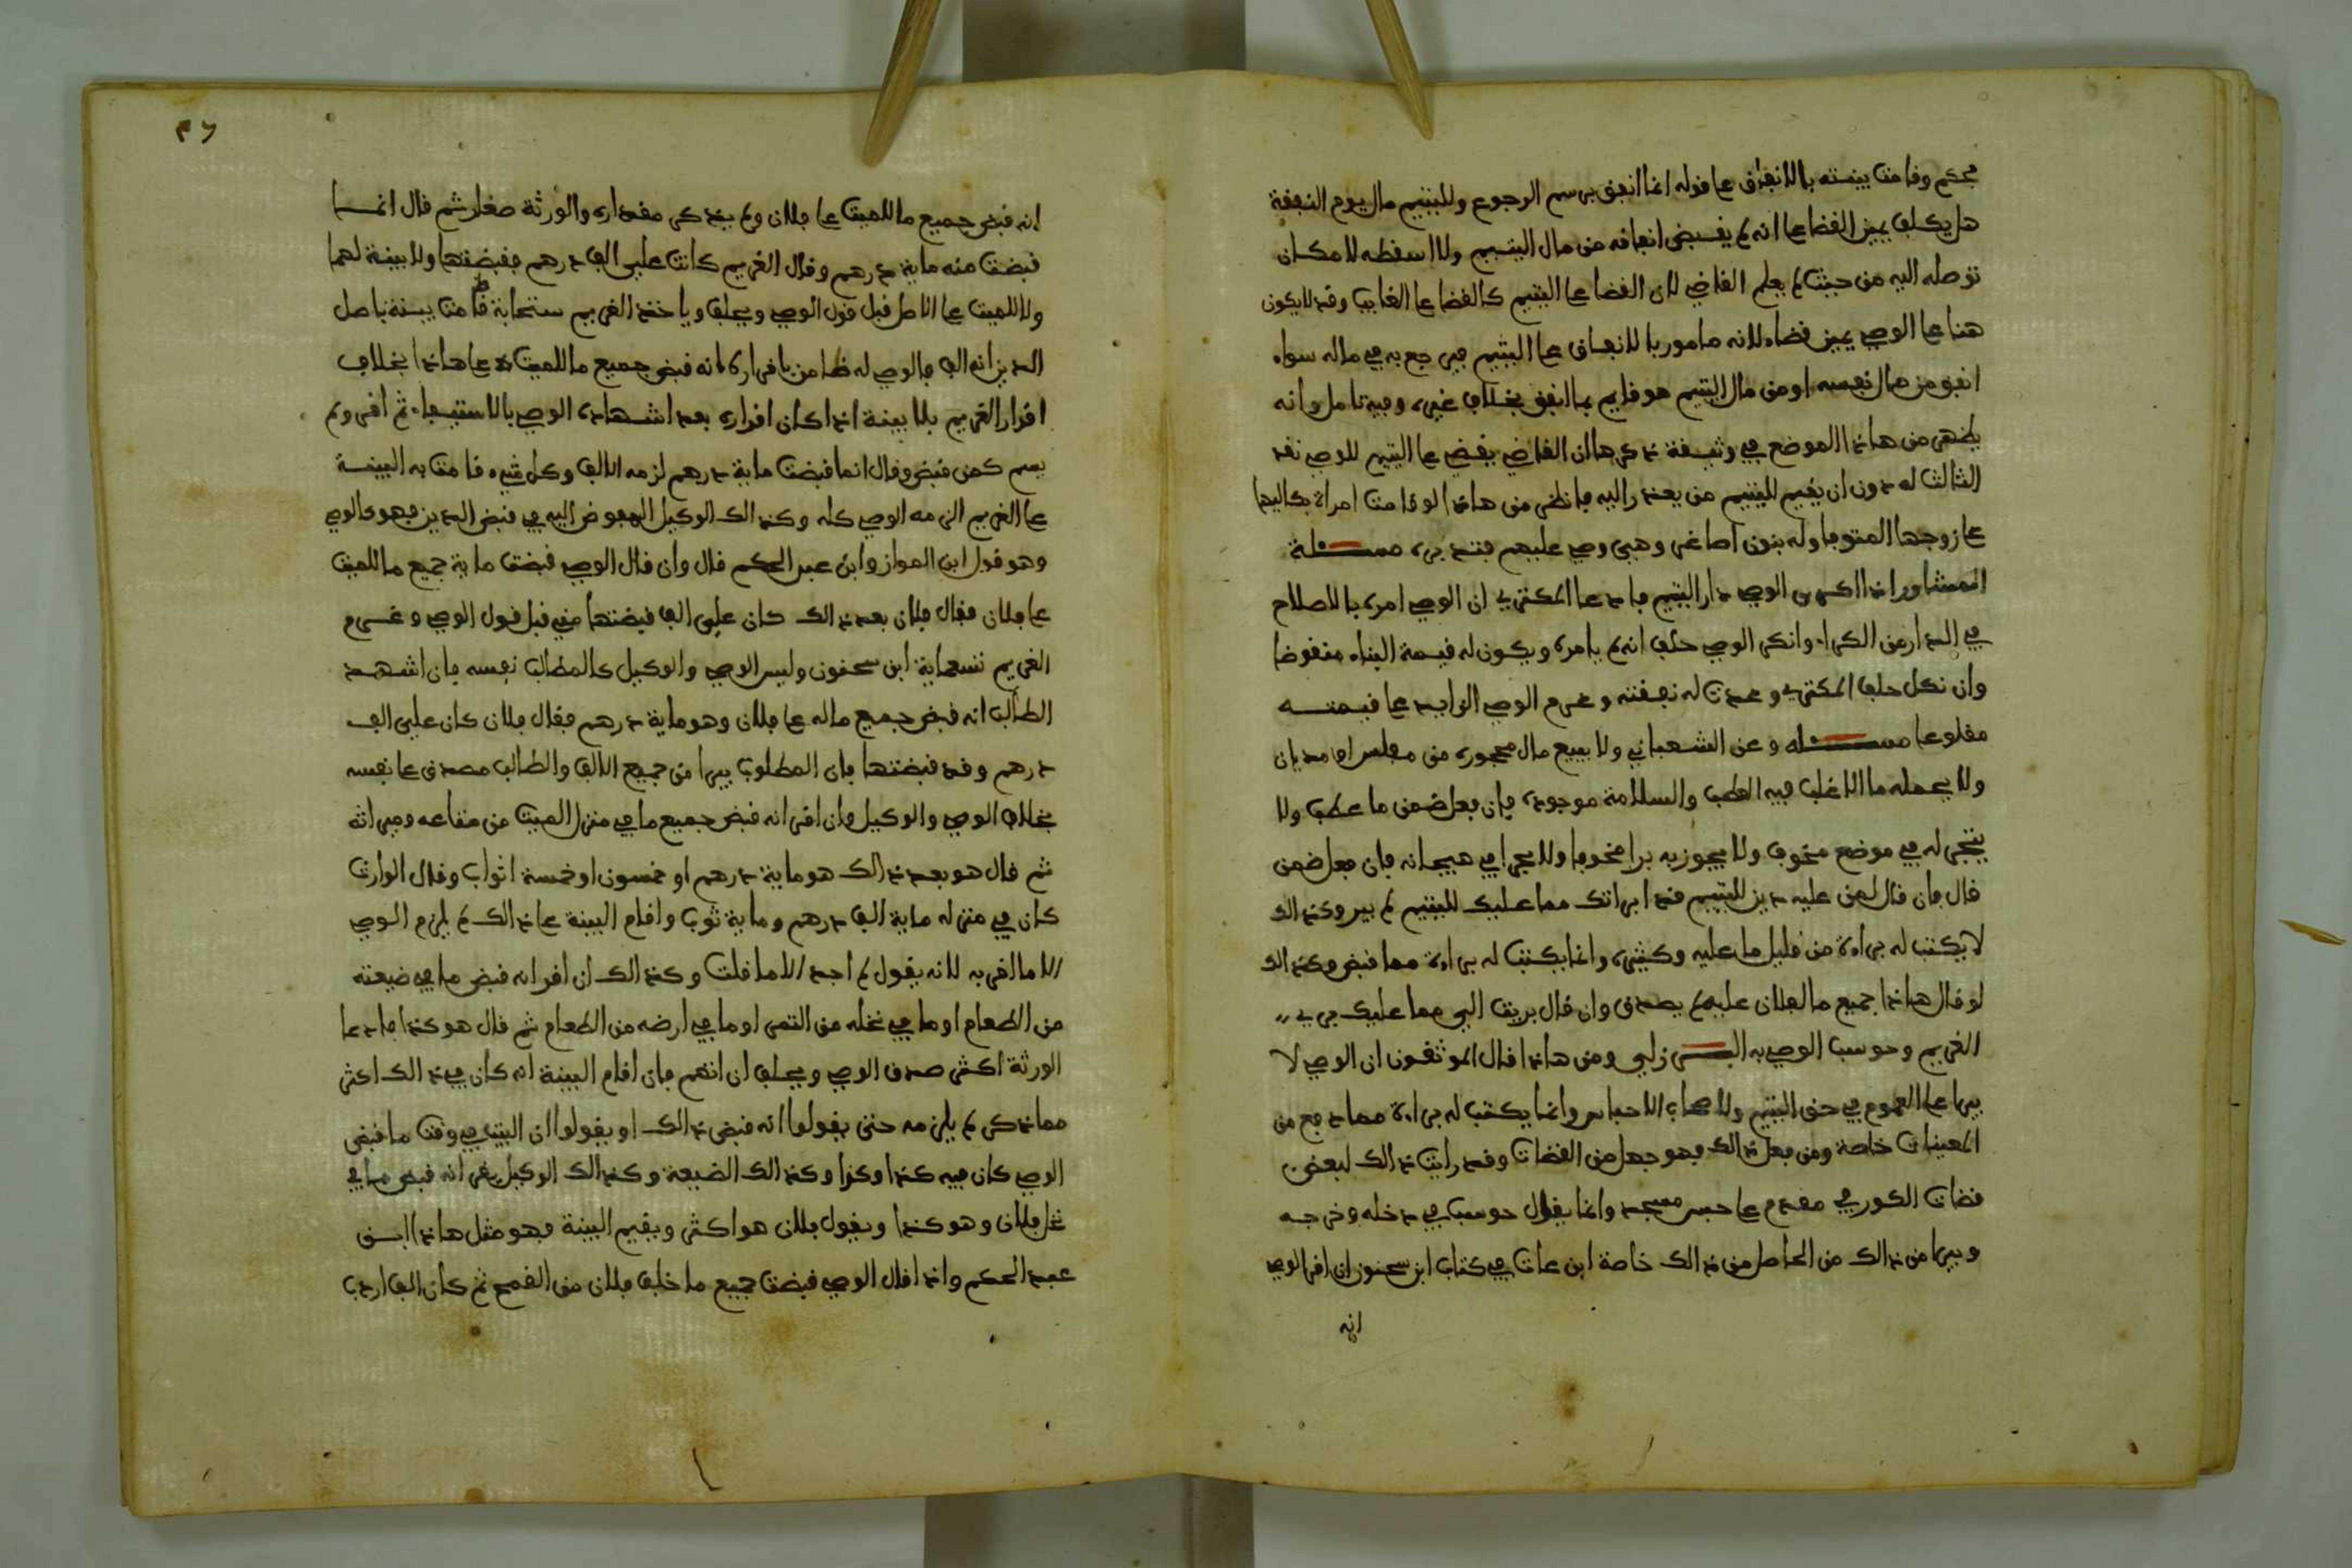 محكم وقامت بينته بالانفاق على قوله انما انفق برسم الرجوع ولليتيم مال يوم النفقة
هل يكلف يمين القضا على انه لم يقبض انفاقه من مال اليتيم ولا اسقطه لامكان
توصله اليه من حيث لم يعلم القاضي لان القضا على اليتيم كالقضا على الغايب وقد لا يكون
هنا على الوصي يمين قضاء لانه مامور بالانفاق على اليتيم فيرجع به في ماله سواء
انفق من مال نفسه او من مال اليتيم هو قايم بما انفق بخلاف غيره وفيه تامل وانه
يظهر من هاذا الموضع في وثيقة ذكرها ان القاضي يقضي على اليتيم للوصي نفد
الثالث له دون ان يقيم لليتيم من يعذر اليه فانظر من هاذا لو قامت امراة بكاليها
على زوجها المتوفا وله بنون اصاغر وهي وصي عليهم فتدبره مسئلة
المشاور اذا اكرى الوصي دار اليتيم فادعا المكتري ان الوصي امره بالاصلاح
في الدار من الكراء وانكر الوصي حلف انه لم يامره ويكون له قيمة البناء منقوضا
وان نكل حلف المكتري وعدت له نفقته وغرم الوصي الزايد على قيمته
مقلوعا مسئله وعن الشعباني ولا يبيع مال محجوره من مفلس او مديان
ولا يحمله ما الاغلب فيه العطب والسلامة موجودة فان فعل ضمن ما عطب ولا
يتجر له في موضع مخوف ولا يجوز به برا مخوفا ولا بحرا في هيجانه فان فعل ضمن
قال فان قال لمن عليه دين لليتيم قد ابراتك مما عليك لليتيم لم يبر وكذالك
لا يكتب له براءة من قليل ما عليه وكثيره وانما يكتب له براءة مما قبض وكذالك
لو قال هاذا جميع ما لفلان عليه لم يصدق وان قال بريت الي مما عليك بري
الغريم وحوسب الوصي به البرزلي ومن هاذا قال الموثقون ان الوصي لا
يبرا على العموم في حق اليتيم ولا صاحب الاحباس وانما يكتب له براءة مما دفع من
المعينات خاصة ومن فعل ذالك فهو جهل من القضات وقد رايت ذالك لبعض
قضات الكور في مقدم على حبس مسجد وانما يقول حوسب في دخله وخرجه
ويبرا من ذالك من الحاصل من ذالك خاصة ابن عات في كتاب ابن سحنون ان اقر الوصي
انه
٤٦
انه قبض جميع ما للميت على فلان ولم يذكر مقداره والورثة صغار ثم قال انما
قبضت منه ماية درهم وقال الغريم كانت علي الف درهم فقبضتها ولا بينة لهما
ولا للميت على الاصل قبل قول الوصي ويحلف وياخذ الغريم ستماية قامت بينة باصل
الدين انه الف فالوصي له ضامن باقراره انه قبض جميع ما للميت على هاذا بخلاف
اقرار الغريم بلا بينة اذا كان اقراره بعد اشهاده الوصي بالاستيفاء ثم اقر ولم
يسم كمن قبض وقال انما قبضت ماية درهم لزمه الالف وكل شيء قامت به البينة
على الغريم الزمه الوصي كله وكذالك الوكيل المفوض اليه في قبض الدين فهو كالوصي
وهو قول ابن المواز وابن عبد الحكم قال وان قال الوصي قبضت ماية جميع ما للميت
على فلان فقال فلان بعد ذالك كان علي الف قبضتها مني قبل قول الوصي وغرم
الغريم تسعماية ابن سحنون وليس الوصي والوكيل كالمطالب نفسه فان اشهد
الطالب انه قبض جميع ماله على فلان وهو ماية درهم فقال فلان كان علي الف
درهم وقد قبضتها فان المطلوب يبرا من جميع الالف والطالب مصدق على نفسه
بخلاف الوصي والوكيل وان اقر انه قبض جميع ما في منزل الميت من متاعه وميراثه
ثم قال هو بعد ذالك هو ماية درهم او خمسون او خمسة اثواب وقال الوارث
كان في منزله ماية الف درهم وماية ثوب واقام البينة على ذالك لم يلزم الوصي
الا ما اقر به لانه يقول لم اجد الا ما قلت وكذالك ان اقر انه قبض ما في ضيعته
من الطعام او ما في نخله من التمر او ما في ارضه من الطعام ثم قال هو كذا فادعا
الورثة اكثر صدق الوصي ويحلف ان اتهم فان اقام البينة انه كان في ذالك اكثر
مما ذكر لم يلزمه حتى يقولوا انه قبض ذالك او يقولوا ان البيت في وقت ما قبض
الوصي كان فيه كذا وكذا وكذالك الضيعة وكذالك الوكيل يقر انه قبض ما في
نخل فلان وهو كذا ويقول فلان هو اكثر ويقيم البينة فهو مثل هاذا ابن
عبد الحكم واذا قال الوصي قبضت جميع ما خلف فلان من القمح ثم كان الف اردب